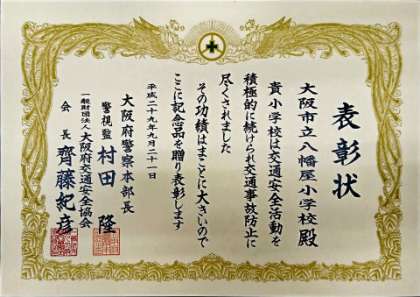 表彰状
大阪市立八幡屋小学校 殿
貴小学校は交通安全活動を
積極的に続けられ交通事故防止に
尽くされました
その功績はまことに大きいので
ここに記念品を贈り表彰します
平成二十九年九月二十一日
大阪府警察本部長
警視監 村田 隆
一般財団法人 大阪府交通安全協会
会長 齊藤紀彦